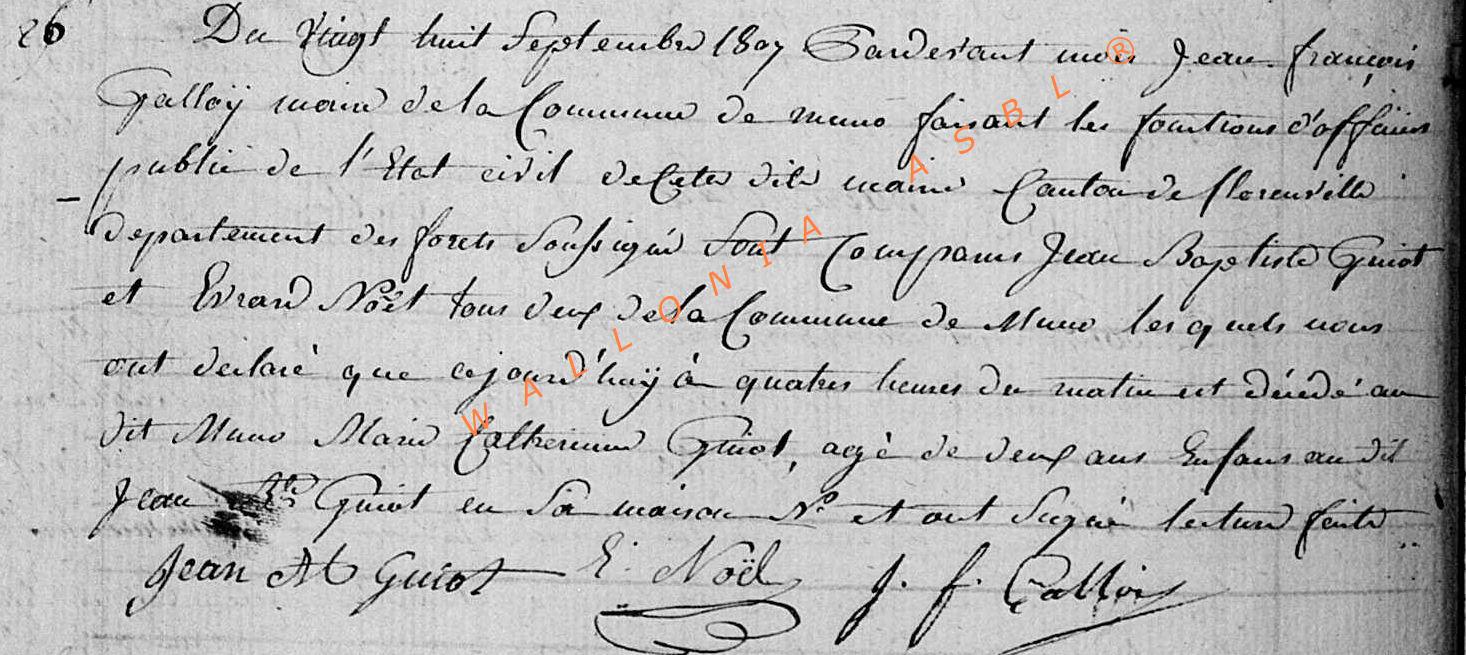 26 Du Vingt huit Septembre 1807 Pardevant moi Jean françois
Galloÿ maire de la Commune de muno faisant les fonctions d'officier
public de l'Etat civil de Cette dite mairie Canton de florenville
departement des forets Soussigné Sont Comparus Jean Baptiste Guiot
et Evrard Noël tous deux de la Commune de Muno les quels nous
ont declaré que cejourd'huÿ à quatres heures du matin est décédé au
dit Muno Marie Catherinne Guiot, agé de deux ans Enfans au dit
Jean Bte Guiot en Sa maison No et ont Signé lecture faite
Jean Bt Guiot E. Noël J. f. Gallois
WALLONIA ASBL ®